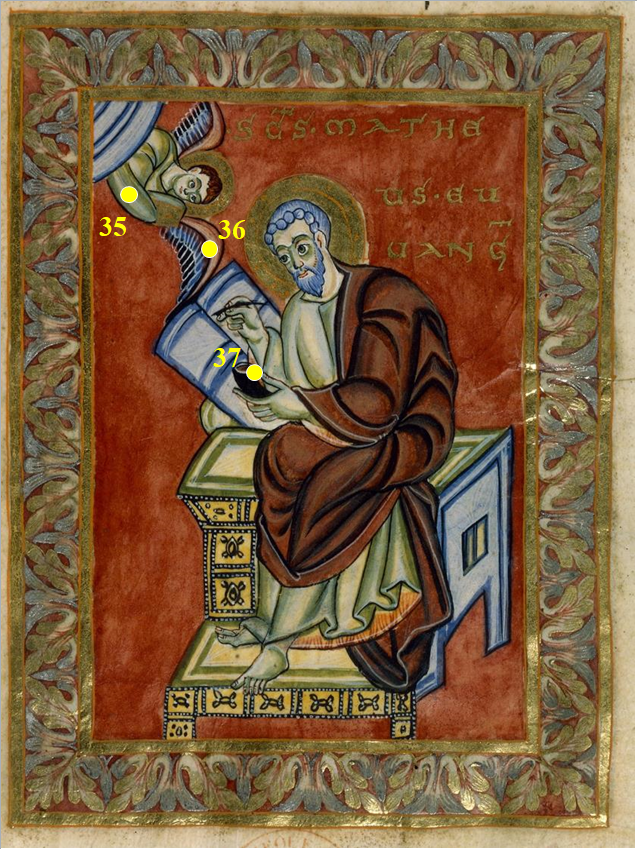 SC̄S·MATHE
US·EU
UANḠ
35
36
37